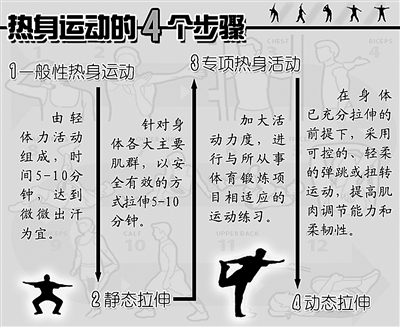 热身运动的4个步骤
1一般性热身运动
由轻
体力活动
组成，时
间5-10分
钟，达到
微微出汗
为宜。
2静态拉伸
针对身
体各大主要
肌群，以安
全有效的方
式拉伸5-10
分钟。
3专项热身活动
加大活
动力度，进
行与所从事
体育锻炼项
目相适应的
运动练习。
4动态拉伸
在身体
已充分拉伸的
前提下，采用
可控的、轻柔
的弹跳或扭转
运动，提高肌
肉调节能力和
柔韧性。
CHEST
BICEPS
4
9
CALF
10
UPPER BACK
11
12